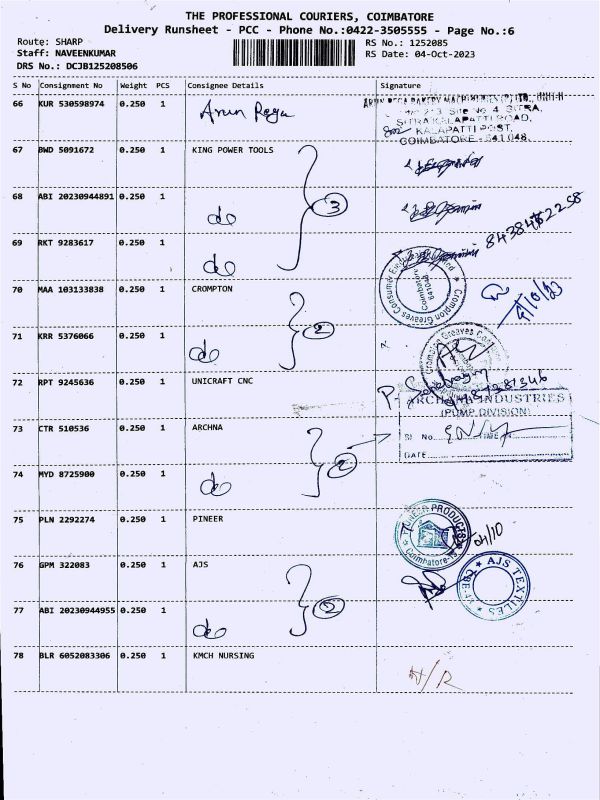 THE PROFESSIONAL COURIERS, COIMBATORE
Delivery Runsheet - PCC - Phone No.:0422-3505555 - Page No.:6
Route: SHARP RS No.: 1252085
Staff: NAVEENKUMAR RS Date: 04-Oct-2023
DRS No.: DCJB125208506
S No Consignment No Weight PCS Consignee Details Signature
66 KUR 530598974 0.250 1 Arun Rega
SITRA,
SITRA KALAPATTI ROAD,
KALAPATTI POST,
COIMBATORE - 641 048.
67 BWD 5091672 0.250 1 KING POWER TOOLS
68 ABI 20230944891 0.250 1 do 3
69 RKT 9283617 0.250 1 do
70 MAA 103133838 0.250 1 CROMPTON
Crompton Greaves Consumer
Coimbatore
641048
71 KRR 5376066 0.250 1 do 2
Crompton Greaves
72 RPT 9245636 0.250 1 UNICRAFT CNC
73 CTR 510536 0.250 1 ARCHNA 2
INDUSTRIES
(PUMP DIVISION)
No.
DATE
74 MYD 8725900 0.250 1 do
75 PLN 2292274 0.250 1 PINEER
PIONEER PRODUCTS
Coimbatore
04/10
76 GPM 322083 0.250 1 AJS
AJS TEXTILES
77 ABI 20230944955 0.250 1 do 2
78 BLR 6052083306 0.250 1 KMCH NURSING
N/R